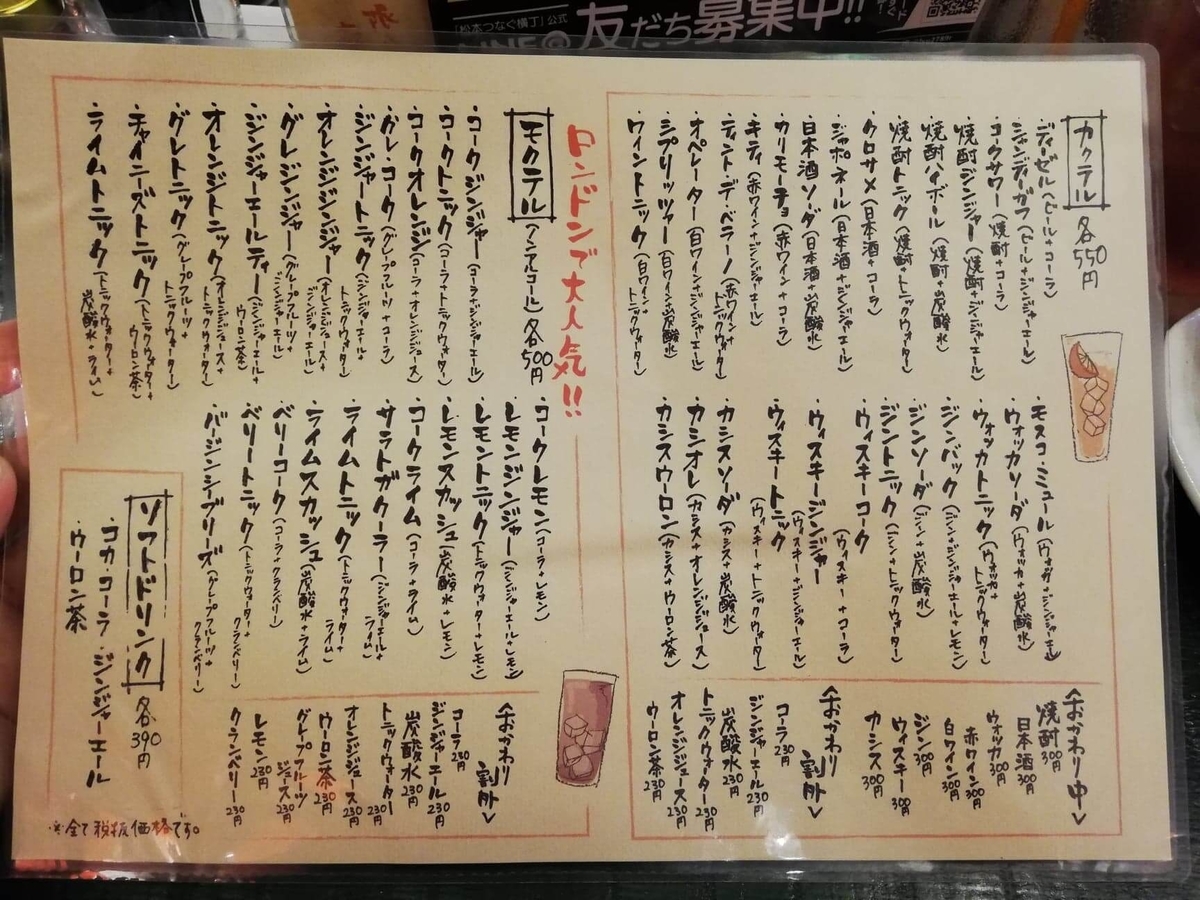 「松本つなぐ横丁」公式
LINE@友だち募集中!!
カクテル 各550円
・ディーゼル(ビール+コーラ)
・シャンディーガフ(ビール+ジンジャーエール)
・コークサワー(焼酎+コーラ)
・焼酎ジンジャー(焼酎+ジンジャーエール)
・焼酎ハイボール(焼酎+炭酸水)
・焼酎トニック(焼酎+トニックウォーター)
・クロサメ(日本酒+コーラ)
・ジャポネール(日本酒+ジンジャーエール)
・日本酒ソーダ(日本酒+炭酸水)
・カリモーチョ(赤ワイン+コーラ)
・キティ(赤ワイン+ジンジャーエール)
・ティントデベラーノ(赤ワイン+トニックウォーター)
・オペレーター(白ワイン+ジンジャーエール)
・シプリッツァー(白ワイン+炭酸水)
・ワイントニック(白ワイン+トニックウォーター)
・モスコ・ミュール(ウォッカ+ジンジャーエール)
・ウォッカソーダ(ウォッカ+炭酸水)
・ウォッカトニック(ウォッカ+トニックウォーター)
・ジンバック(ジン+ジンジャーエール+レモン)
・ジンソーダ(ジン+炭酸水)
・ジントニック(ジン+トニックウォーター)
・ウィスキーコーク(ウィスキー+コーラ)
・ウィスキージンジャー(ウィスキー+ジンジャーエール)
・ウィスキートニック(ウィスキー+トニックウォーター)
・カシスソーダ(カシス+炭酸水)
・カシオレ(カシス+オレンジジュース)
・カシスウーロン(カシス+ウーロン茶)
<おかわり中>
焼酎300円
日本酒300円
ウォッカ300円
赤ワイン300円
白ワイン300円
ジン300円
ウィスキー300円
カシス300円
<おかわり割外>
コーラ230円
ジンジャーエール230円
炭酸水230円
トニックウォーター230円
オレンジジュース230円
ウーロン茶230円
ロンドンで大人気!!
モクテル(ノンアルコール)各500円
・コークジンジャー(コーラ+ジンジャーエール)
・コークトニック(コーラ+トニックウォーター)
・コークオレンジ(コーラ+オレンジジュース)
・グレ・コーク(グレープフルーツ+コーラ)
・ジンジャートニック(ジンジャーエール+トニックウォーター)
・オレンジジンジャー(オレンジジュース+ジンジャーエール)
・グレジンジャー(グレープフルーツ+ジンジャーエール)
・ジンジャーエールティー(ジンジャーエール+ウーロン茶)
・オレンジトニック(オレンジジュース+トニックウォーター)
・グレトニック(グレープフルーツ+トニックウォーター)
・チャイニーズトニック(トニックウォーター+ウーロン茶)
・ライムトニック(トニックウォーター+炭酸水+ライム)
・コークレモン(コーラ+レモン)
・レモンジンジャー(ジンジャーエール+レモン)
・レモントニック(トニックウォーター+レモン)
・レモンスカッシュ(炭酸水+レモン)
・コークライム(コーラ+ライム)
・サラトガクーラー(ジンジャーエール+ライム)
・ライムトニック(トニックウォーター+ライム)
・ライムスカッシュ(炭酸水+ライム)
・ベリーコーク(コーラ+クランベリー)
・ベリートニック(トニックウォーター+クランベリー)
・バージンシーブリーズ(グレープフルーツ+クランベリー)
<おかわり割外>
コーラ230円
ジンジャーエール230円
炭酸水230円
トニックウォーター230円
オレンジジュース230円
ウーロン茶230円
グレープフルーツジュース230円
レモン230円
クランベリー230円
ソフトドリンク 各390円
・コカ・コーラ・ジンジャーエール
・ウーロン茶
※全て税抜価格です。